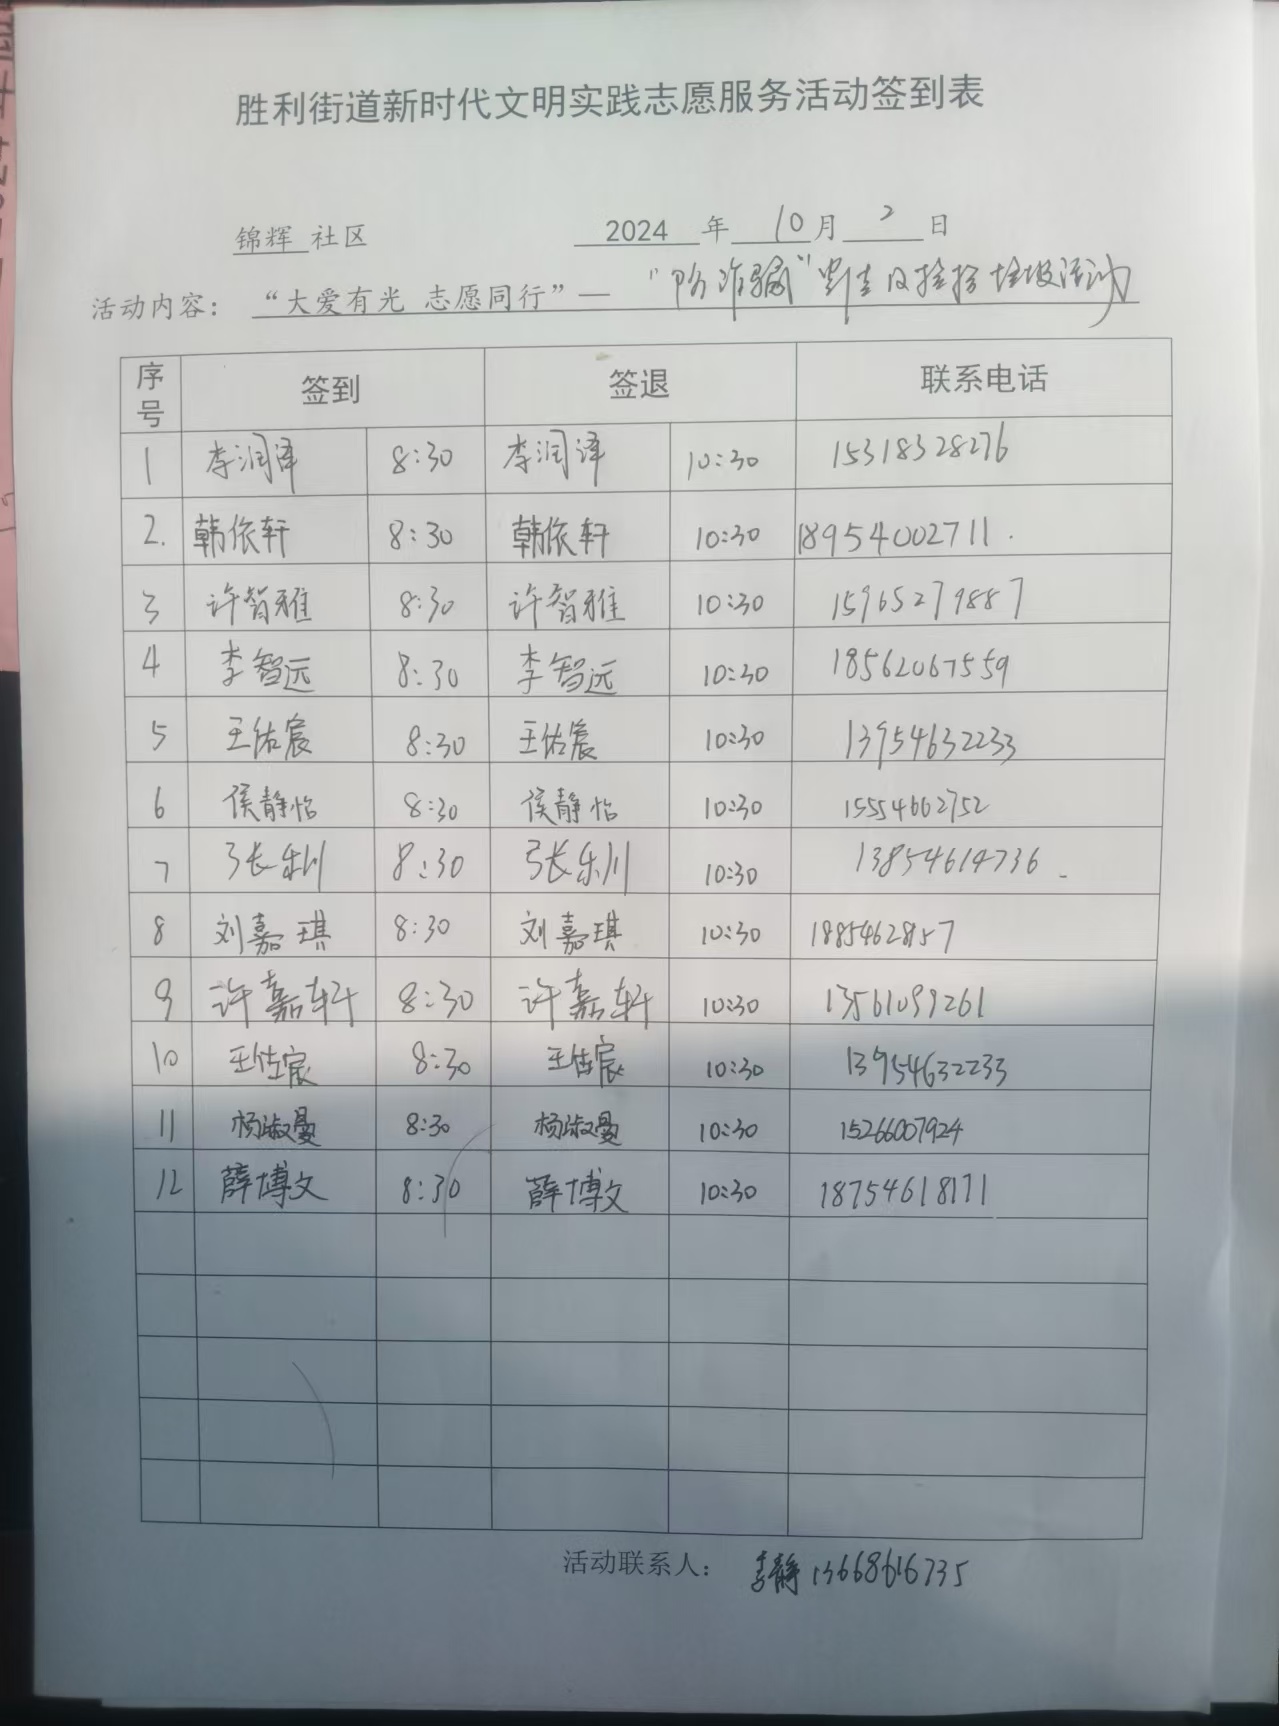 胜利街道新时代文明实践志愿服务活动签到表
锦辉 社区 2024 年 10 月 2 日
活动内容： “大爱有光 志愿同行”— “防诈骗” 及捡拾垃圾活动
序号 签到 签退 联系电话
1 李润泽 8:30 李润泽 10:30 15318328276
2. 韩依轩 8:30 韩依轩 10:30 18954002711.
3 许智雅 8:30 许智雅 10:30 15965279887
4 李智远 8:30 李智远 10:30 18562067559
5 王佑宸 8:30 王佑宸 10:30 13954632233
6 侯静怡 8:30 侯静怡 10:30 15554662752
7 张乐川 8:30 张乐川 10:30 13854614736
8 刘嘉琪 8:30 刘嘉琪 10:30 18854628157
9 许嘉轩 8:30 许嘉轩 10:30 13561099261
10 王佳宸 8:30 王佳宸 10:30 13954632233
11 杨淑曼 8:30 杨淑曼 10:30 15266007924
12 薛博文 8:30 薛博文 10:30 18754618171
活动联系人： 李静 13668616735